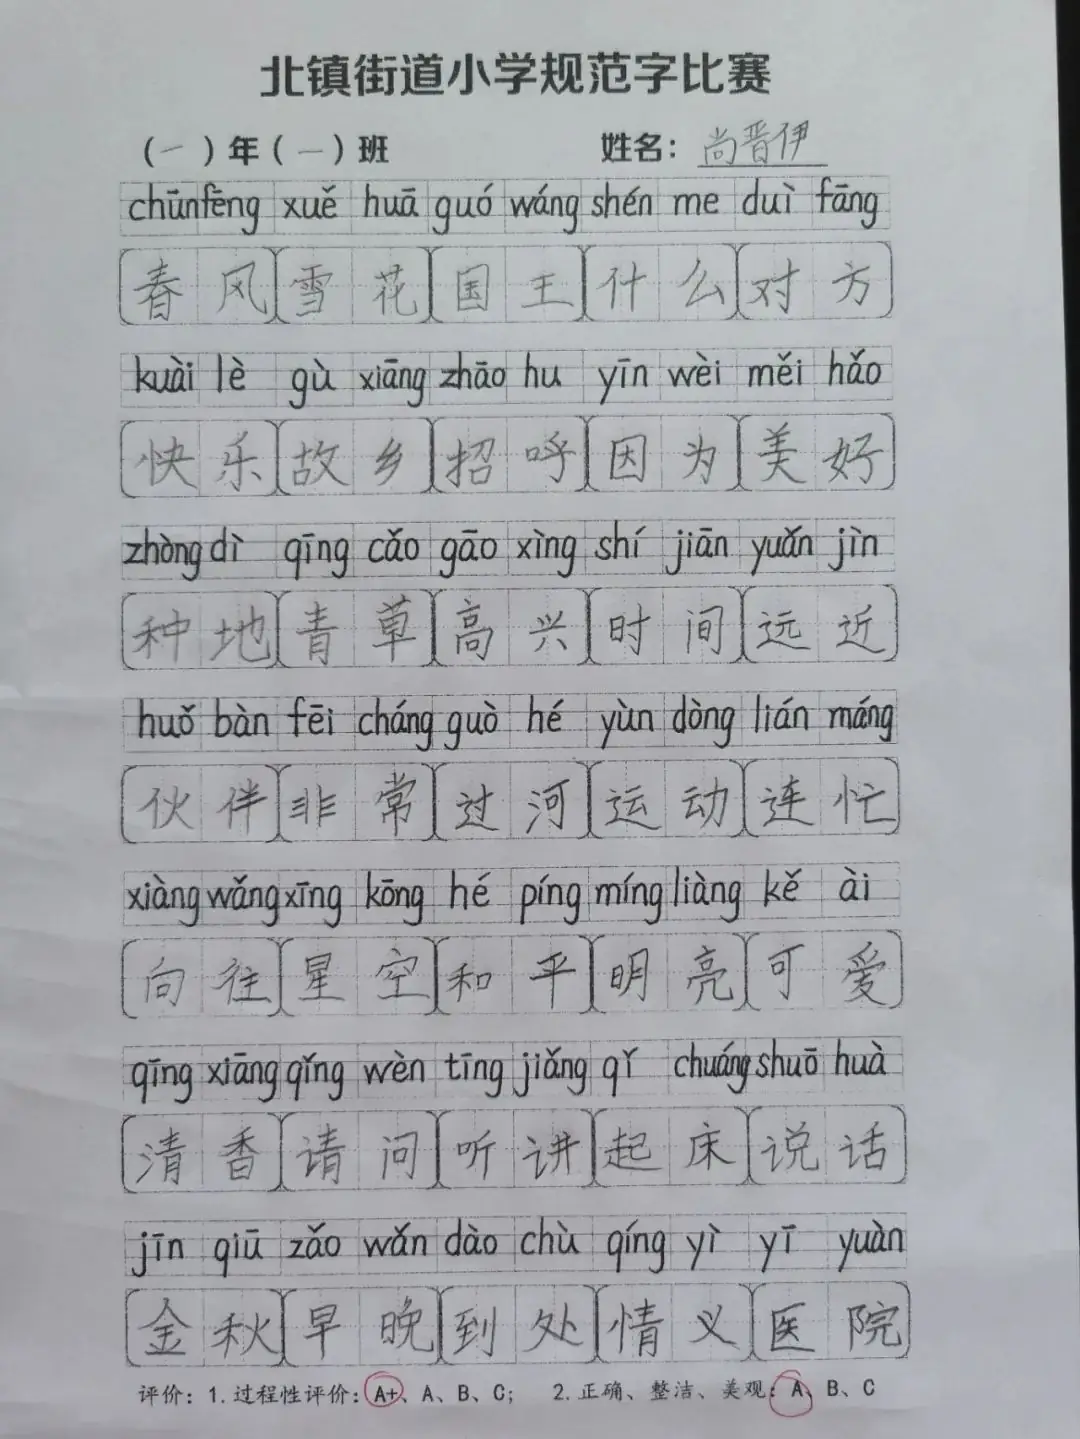 北镇街道小学规范字比赛
（一）年（一）班 姓名：尚晋伊
chūn fēng xuě huā guó wáng shén me duì fāng
春风 雪花 国王 什么 对方
kuài lè gù xiāng zhāo hu yīn wèi měi hǎo
快乐 故乡 招呼 因为 美好
zhòng dì qīng cǎo gāo xìng shí jiān yuǎn jìn
种地 青草 高兴 时间 远近
huǒ bàn fēi cháng guò hé yùn dòng lián máng
伙伴 非常 过河 运动 连忙
xiàng wǎng xīng kōng hé píng míng liàng kě ài
向往 星空 和平 明亮 可爱
qīng xiāng qǐng wèn tīng jiǎng qǐ chuáng shuō huà
清香 请问 听讲 起床 说话
jīn qiū zǎo wǎn dào chù qíng yì yī yuàn
金秋 早晚 到处 情义 医院
评价：1.过程性评价：A+、A、B、C； 2.正确、整洁、美观：A、B、C